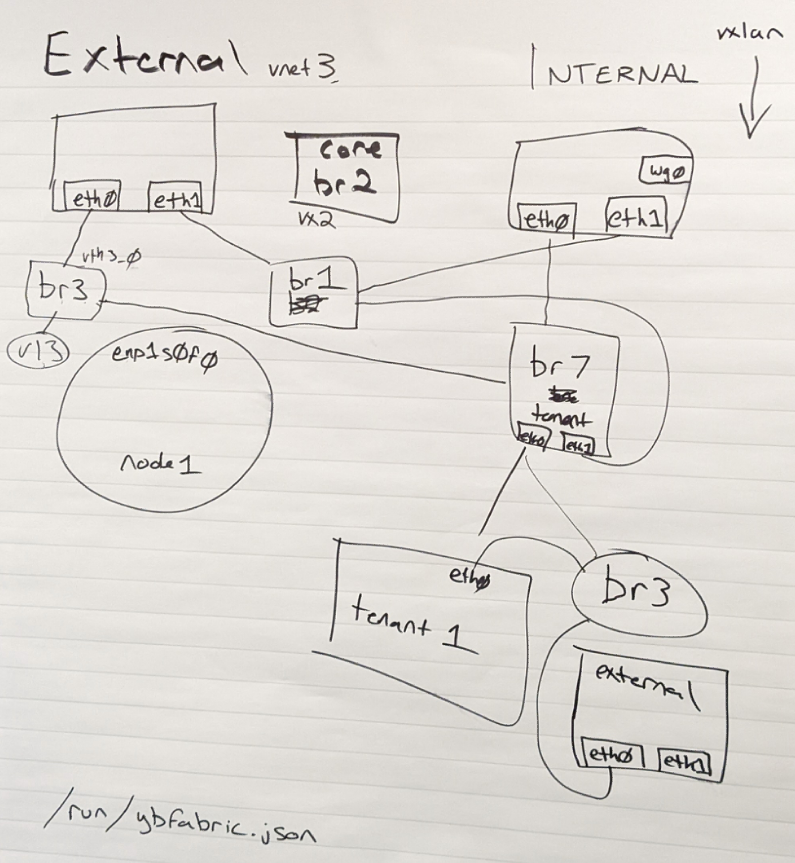 External vnet3
INTERNAL
vxlan
eth0
eth1
core
br2
vx2
wg0
eth0
eth1
vth3_0
br3
vl3
br1
enp1s0f0
node1
br7
tenant
eth0
eth1
eth0
tenant 1
br3
external
eth0
eth1
/run/ybfabric.json